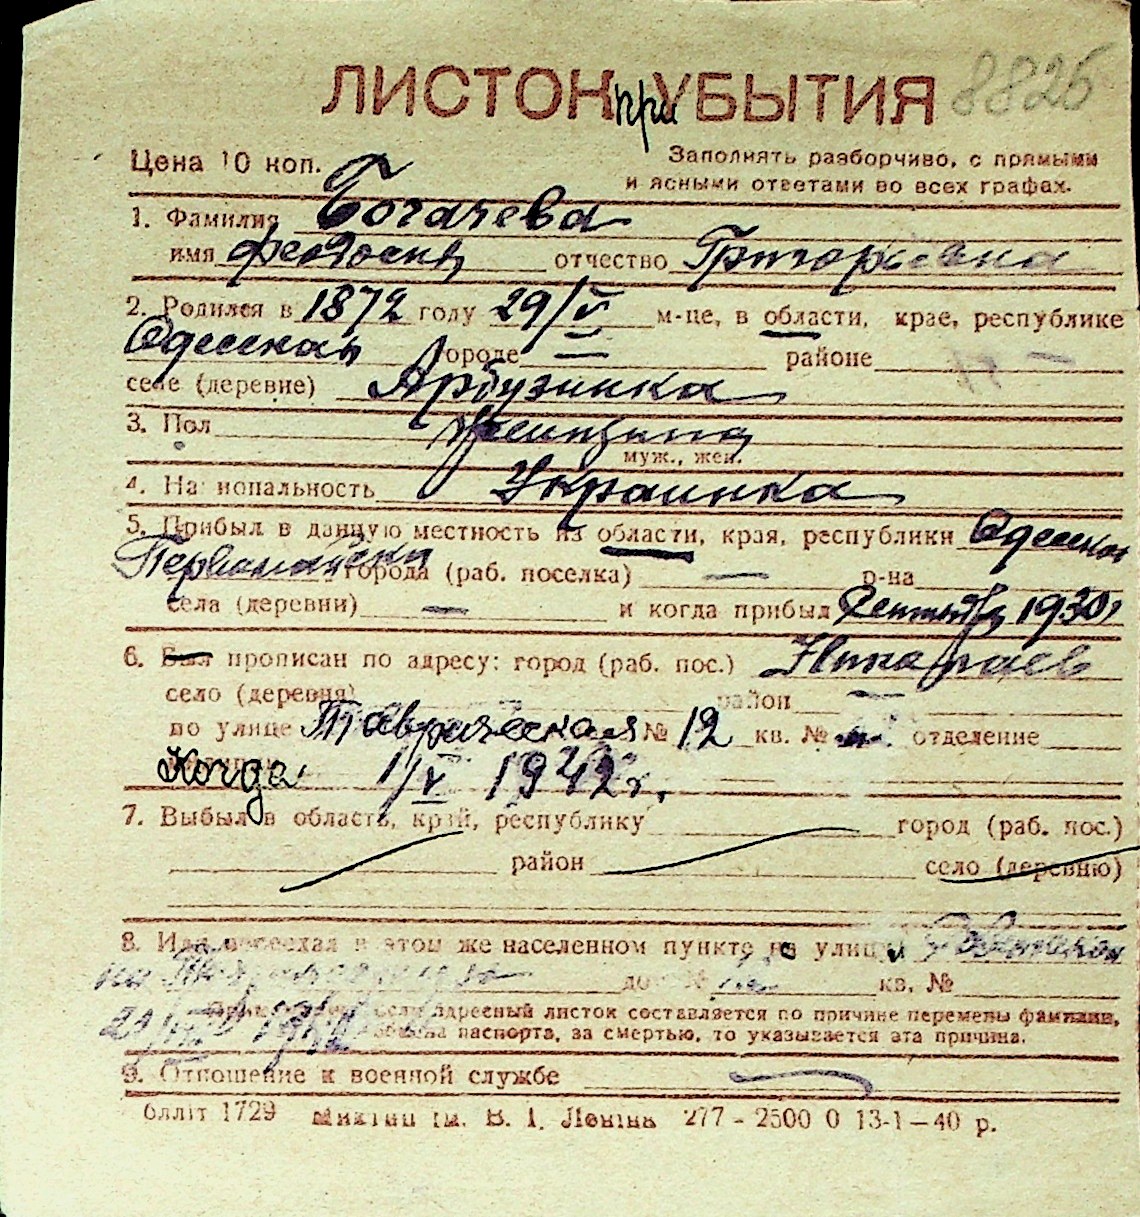 8826
ЛИСТОК при УБЫТИЯ
Цена 10 коп.
Заполнять разборчиво, с прямыми
и ясными ответами во всех графах.
1. Фамилия Богачева
имя Феодосия отчество Григорьевна
2. Родился в 1872 году 29/V м-це, в области, крае, республике
Одесская городе — районе —
селе (деревне) Арбузинка
3. Пол женщина
муж., жен.
4. Национальность Украинка
5. Прибыл в данную местность из области, края, республики Одесская
Первомайска города (раб. поселка) — р-на
села (деревни) — и когда прибыл Сентябрь 1930г
6. Был прописан по адресу: город (раб. пос.) Николаев
село (деревня) район —
по улице Таврическая № 12 кв. № — отделение
Когда 1/V 1942г.
7. Выбыл в область, край, республику город (раб. пос.)
район село (деревню)
8. Или переехал в этом же населенном пункте на улицу
на дом № кв. №
Примечание. Если адресный листок составляется по причине перемены фамилии,
обмена паспорта, за смертью, то указывается эта причина.
9. Отношение к военной службе —
Обллiт 1729 iм. В. І. Ленiна 277 - 2500 0 13-1-40 р.